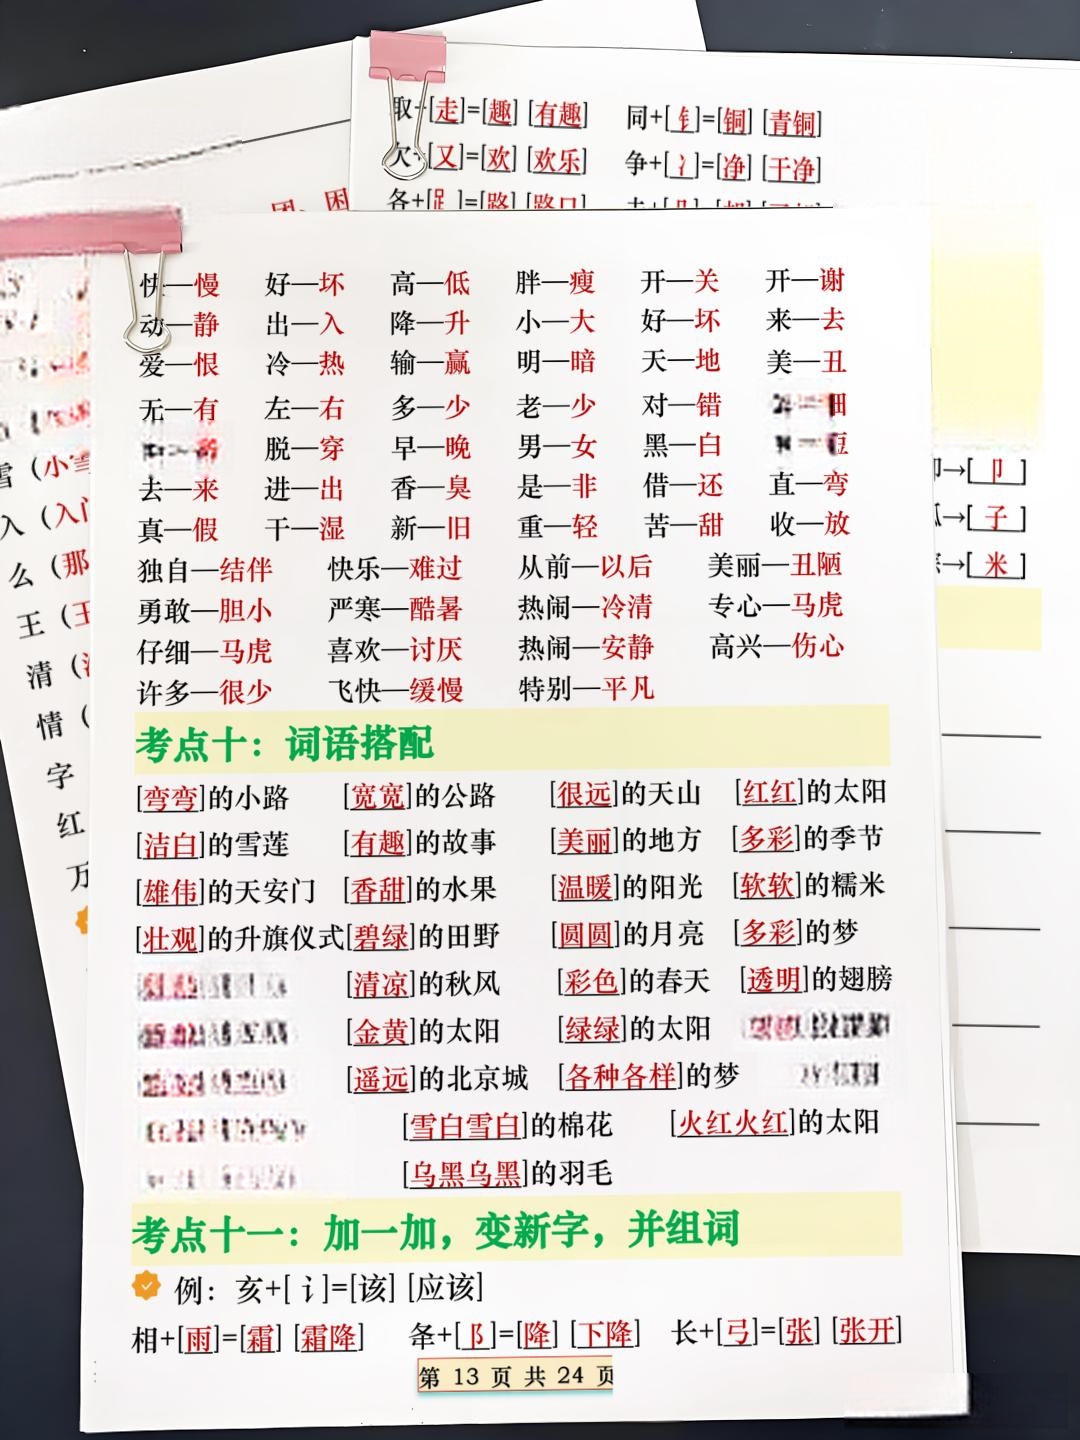 取+[走]=[趣] [有趣] 同+[钅]=[铜] [青铜]
欠+[又]=[欢] [欢乐] 争+[冫]=[净] [干净]
各+[𧾷]=[路] [路口]
团、困
快—慢 好—坏 高—低 胖—瘦 开—关 开—谢
动—静 出—入 降—升 小—大 好—坏 来—去
爱—恨 冷—热 输—赢 明—暗 天—地 美—丑
无—有 左—右 多—少 老—少 对—错 细
脱—穿 早—晚 男—女 黑—白
去—来 进—出 香—臭 是—非 借—还 直—弯
真—假 干—湿 新—旧 重—轻 苦—甜 收—放
独自—结伴 快乐—难过 从前—以后 美丽—丑陋
勇敢—胆小 严寒—酷暑 热闹—冷清 专心—马虎
仔细—马虎 喜欢—讨厌 热闹—安静 高兴—伤心
许多—很少 飞快—缓慢 特别—平凡
考点十：词语搭配
[弯弯]的小路 [宽宽]的公路 [很远]的天山 [红红]的太阳
[洁白]的雪莲 [有趣]的故事 [美丽]的地方 [多彩]的季节
[雄伟]的天安门 [香甜]的水果 [温暖]的阳光 [软软]的糯米
[壮观]的升旗仪式[碧绿]的田野 [圆圆]的月亮 [多彩]的梦
[清凉]的秋风 [彩色]的春天 [透明]的翅膀
[金黄]的太阳 [绿绿]的太阳
[遥远]的北京城 [各种各样]的梦
[雪白雪白]的棉花 [火红火红]的太阳
[乌黑乌黑]的羽毛
考点十一：加一加，变新字，并组词
例：亥+[讠]=[该] [应该]
相+[雨]=[霜] [霜降] 夅+[阝]=[降] [下降] 长+[弓]=[张] [张开]
第 13 页 共 24 页
雪（小雪
入（入门
么（那
王（王
清（
情（
字
红
万
→[卩]
→[子]
→[米]